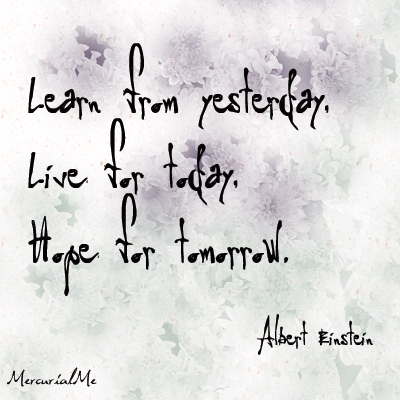 Learn from yesterday,
Live for today,
Hope for tomorrow.
Albert Einstein
MercurialMe